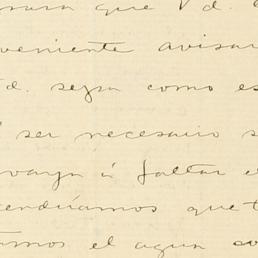 para que Vd.
veniente avisar
d. sepa como es
ser necesario s
vaya á faltar e
endríamos que t
amos el agua co